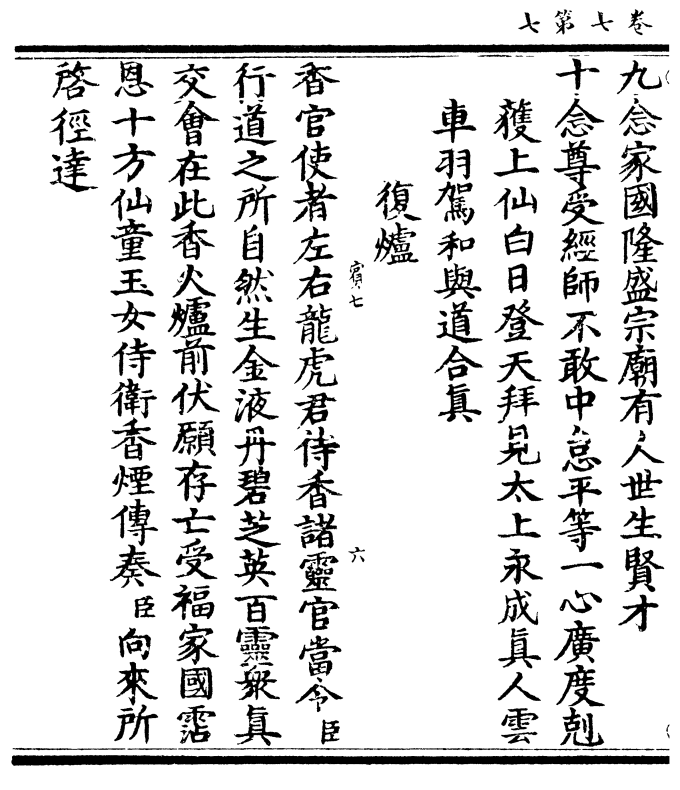 卷七第七
九念家國隆盛宗廟有人世生賢才
十念尊受經師不敢中怠平等一心廣度剋
獲上仙白日登天拜見太上永成眞人雲
車羽駕和與道合眞
復爐
賓七
六
香官使者左右龍虎君待香諸靈官當令臣
行道之所自然生金液丹碧芝英百靈衆眞
交會在此香火爐前伏願存亡受福家國霑
恩十方仙童玉女侍衛香煙傳奏臣向來所
啓徑達